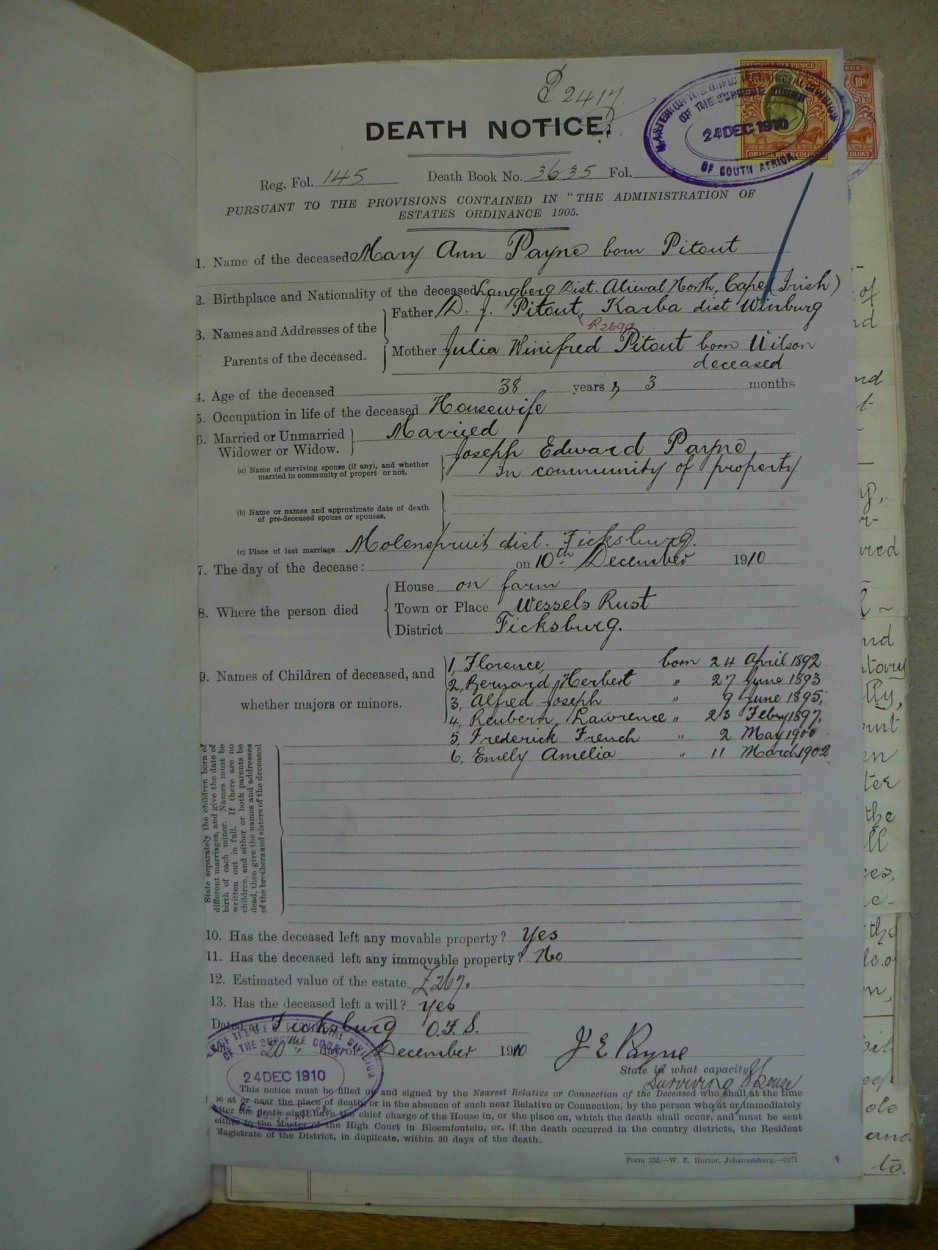 P. 2417
DEATH NOTICE.
Reg. Fol. 145 Death Book No. 3635 Fol.
PURSUANT TO THE PROVISIONS CONTAINED IN "THE ADMINISTRATION OF
ESTATES ORDINANCE 1905.
1. Name of the deceased Mary Ann Payne born Pitout
2. Birthplace and Nationality of the deceased Langberg Dist. Aliwal North, Cape (Irish)
3. Names and Addresses of the Parents of the deceased.
Father D. J. Pitout, Karba dist Winburg
Mother Julia Winifred Pitout born Wilson
deceased
4. Age of the deceased 38 years & 3 months
5. Occupation in life of the deceased Housewife
6. Married or Unmarried Married
Widower or Widow.
(a) Name of surviving spouse (if any), and whether Joseph Edward Payne
married in community of propert or not. In community of property
(b) Name or names and approximate date of death
of pre-deceased spouse or spouses.
(c) Place of last marriage Molenspruit dist. Ficksburg.
7. The day of the decease: on 10th December 1910
8. Where the person died
House on farm
Town or Place Wessels Rust
District Ficksburg.
9. Names of Children of deceased, and
whether majors or minors.
1, Florence born 24 April 1892
2, Bernard Herbert " 27 June 1893
3, Alfred Joseph " 9 June 1895
4, Reubern Lawrence " 23 Febry 1897
5, Frederick French " 2 May 1900
6. Emily Amelia " 11 March 1902
State separately the children born of
different marriages, and give the date of
birth of each minor. Names must be
written out in full. If there are no
children, and either or both parents be
dead, then give the names and addresses
of the brothers and sisters of the deceased
10. Has the deceased left any movable property? Yes
11. Has the deceased left any immovable property? No
12. Estimated value of the estate £267.
13. Has the deceased left a will? Yes
Dated at Ficksburg O.F.S.
20th day of December 1910
J E Payne
State in what capacity
Surviving Spouse
This notice must be filled up and signed by the Nearest Relative or Connection of the Deceased who shall at the time
be at or near the place of death, or in the absence of such near Relative or Connection, by the person who at or immediately
after the death shall have the chief charge of the House in, or the place on, which the death shall occur, and must be sent
either to the Master of the High Court in Bloemfontein, or, if the death occurred in the country districts, the Resident
Magistrate of the District, in duplicate, within 30 days of the death.
Form 535.—W. E. Hortor, Johannesburg.—9171
OF THE SUPREME COURT
24 DEC 1910
OF SOUTH AFRICA
OF THE SUPREME COURT
24 DEC 1910